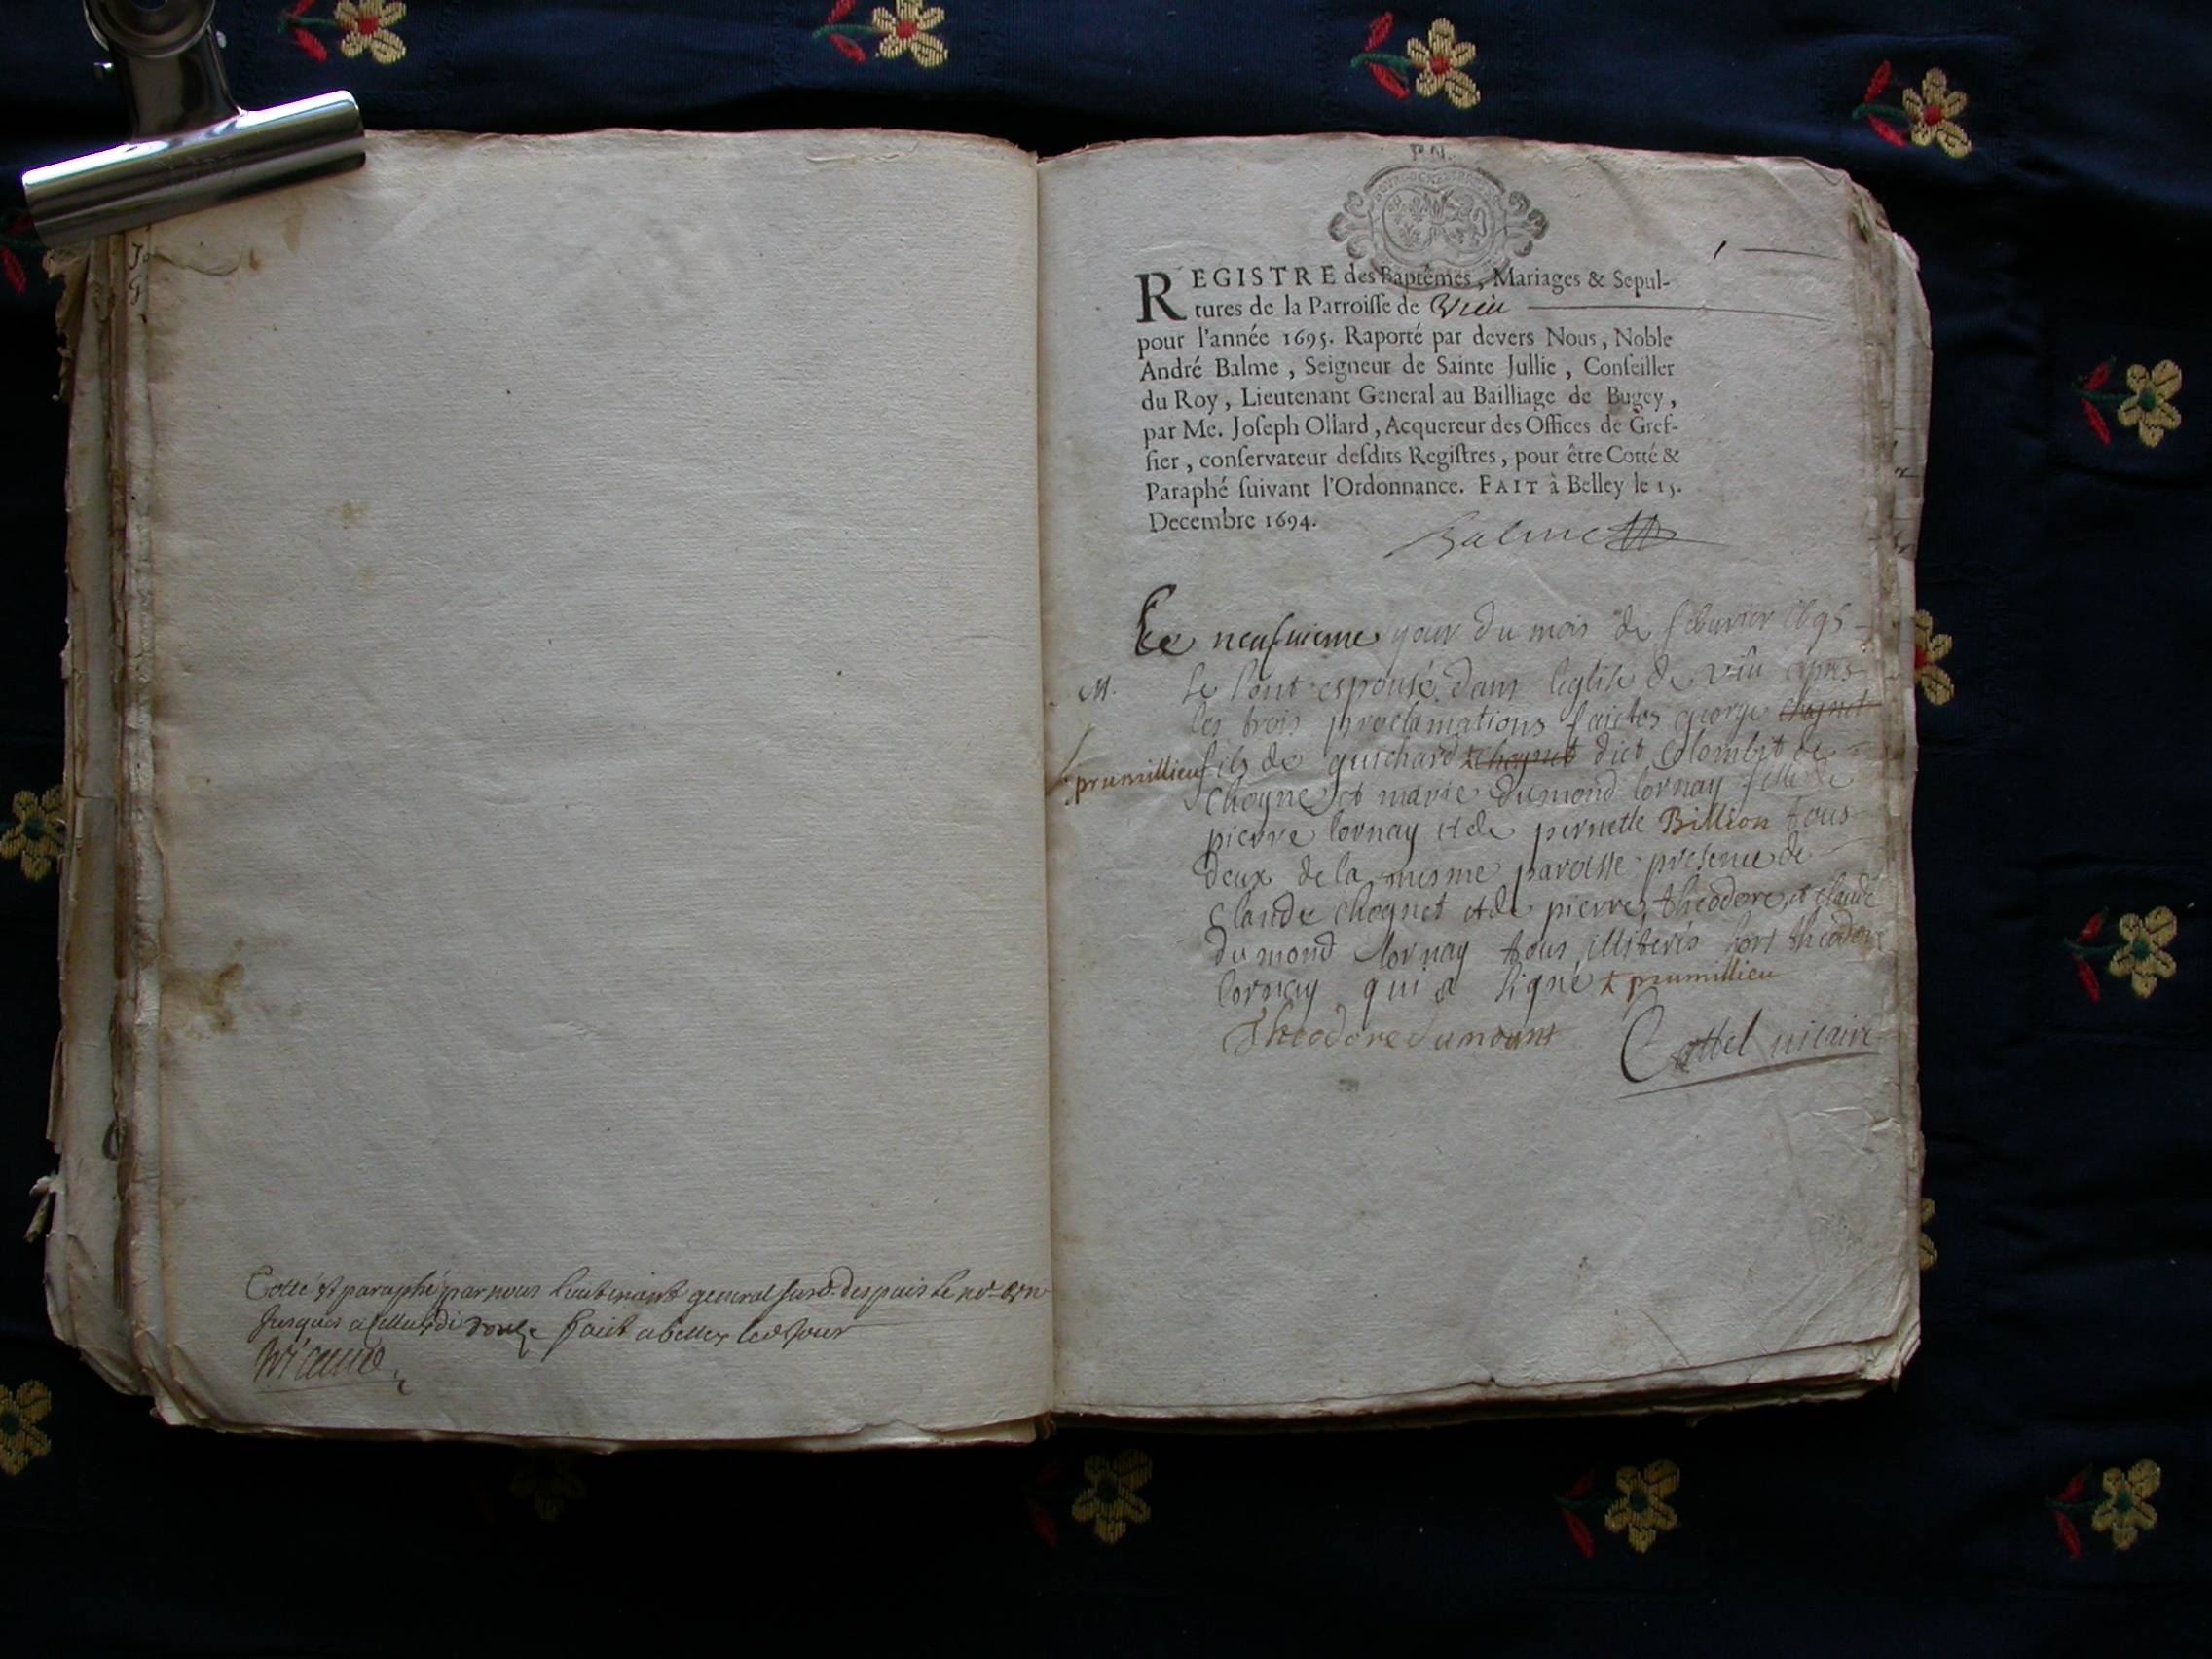 Cotté et paraphé par nous lieutenant general susd. despuis le
Jusques a celluy di douze faict a belley led Jour
REGISTRE des Baptêmes, Mariages & Sepul-
tures de la Parroisse de Vieu
pour l'année 1695. Raporté par devers Nous, Noble
André Balme, Seigneur de Sainte Jullie, Conseiller
du Roy, Lieutenant General au Bailliage de Bugey,
par Me. Joseph Ollard, Acquereur des Offices de Gref-
fier, conservateur desdits Registres, pour être Cotté &
Paraphé suivant l'Ordonnance. FAIT à Belley le 15.
Decembre 1694.
Balme
Le neufuieme jour du mois de feburier 1695
M. Se sont espousé dans leglise de viû apres
les trois proclamations faictes george chognet
+ prumillieu fils de guichard + chognet dict Colombet de
Chogne et marie dumond lornay fille de
pierre lornay et de pernette Billion tous
deux de la mesme paroisse presence de
Claude Chognet et de pierre, theodore, et claude
dumond lornay tous illiterés hors theodore
lornay qui a signé + prumillieu
Theodore dumont
Cottel uicaire